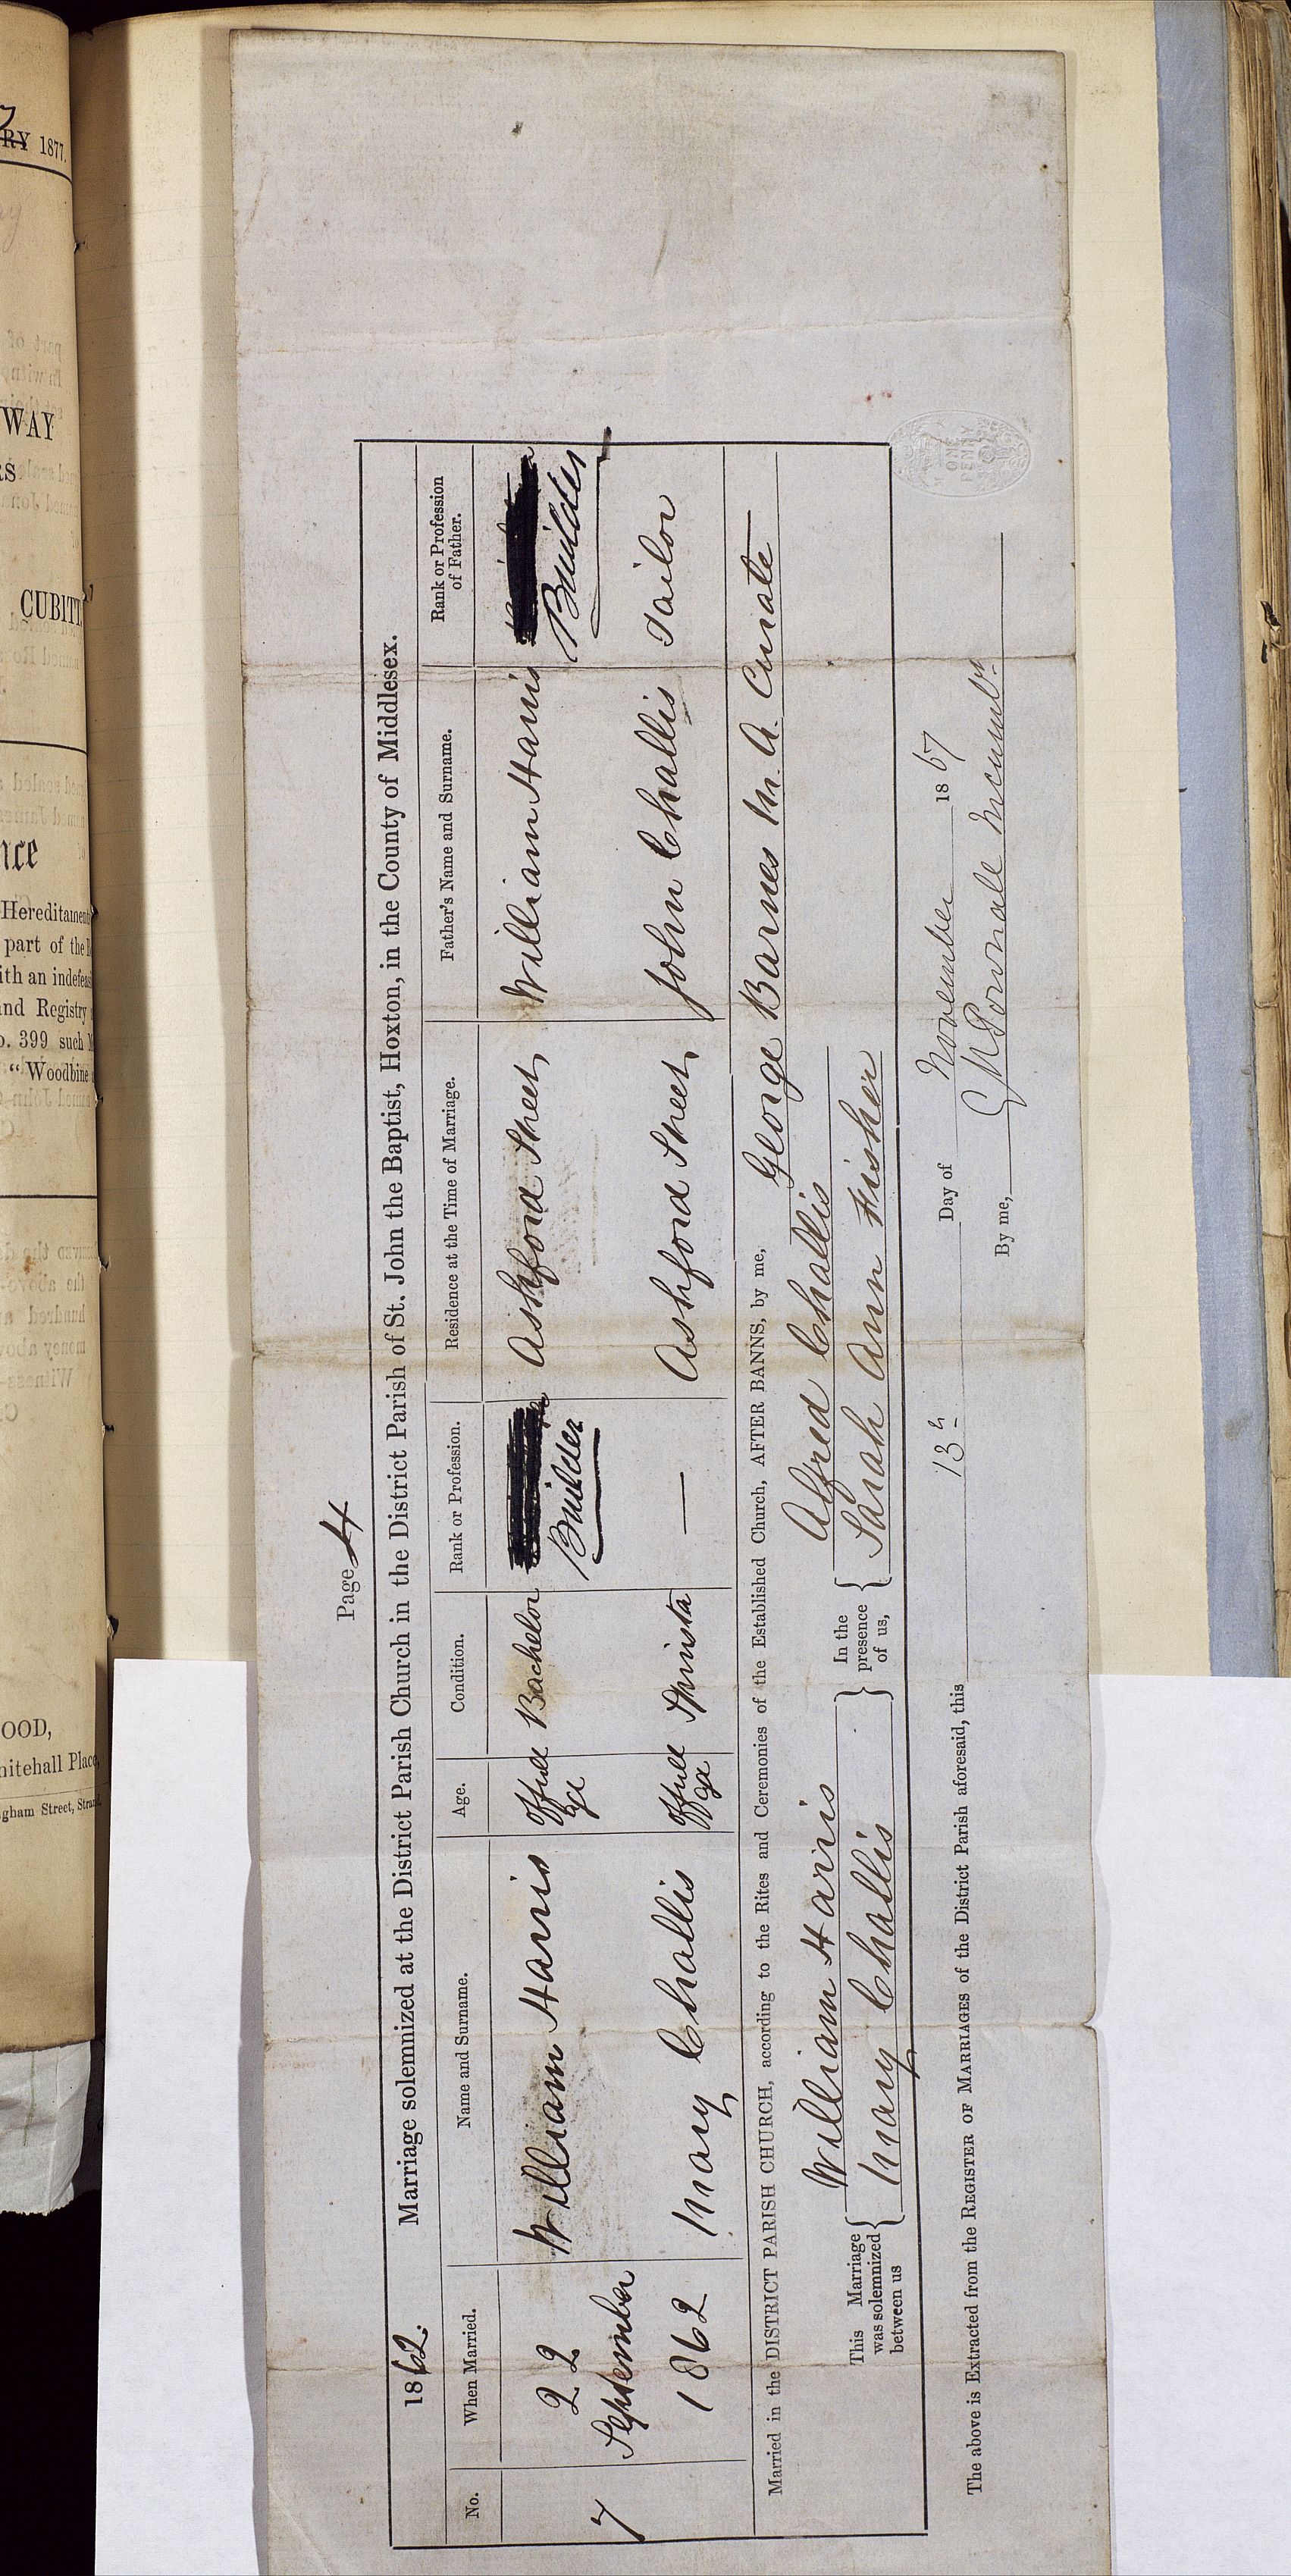 Page 4
1862. Marriage solemnized at the District Parish Church in the District Parish of St. John the Baptist, Hoxton, in the County of Middlesex.
No. When Married. Name and Surname. Age. Condition. Rank or Profession. Residence at the Time of Marriage. Father's Name and Surname. Rank or Profession of Father.
7 22 September 1862 William Harris Of full age Bachelor Builder Ashford Street William Harris Builder
Mary Challis Of full age Spinster — Ashford Street John Challis Tailor
Married in the DISTRICT PARISH CHURCH, according to the Rites and Ceremonies of the Established Church, AFTER BANNS, by me, George Barnes M. A. Curate
This Marriage was solemnized between us { William Harris } In the presence of us, { Alfred Challis
Mary Challis Sarah Ann Fisher
The above is Extracted from the REGISTER OF MARRIAGES of the District Parish aforesaid, this 13th Day of November 1867
By me, Incumbt.
ONE PENNY
RY 1877.
WAY
RS
CUBITT,
nce
Hereditament
part of the
ith an indefeas
and Registry
o. 399 such
"Woodbine
OOD,
hitehall Place,
gham Street, Strand.